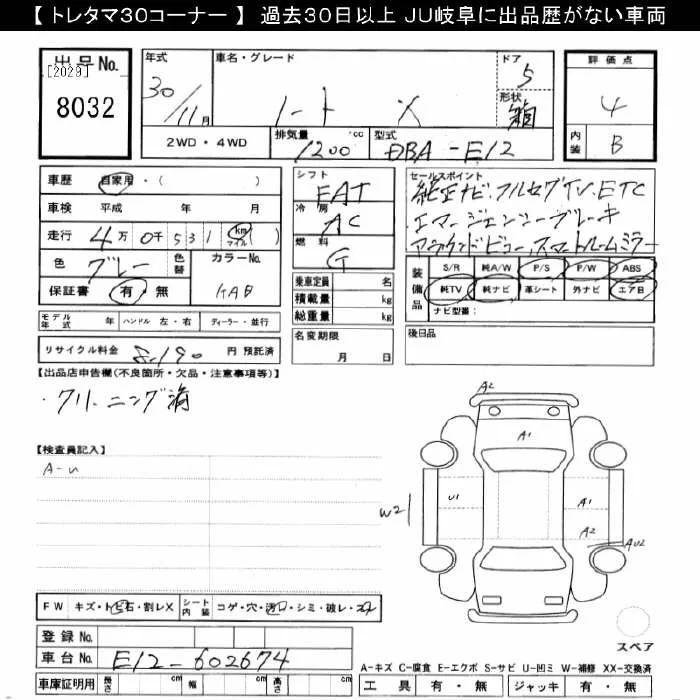 【 トレタマ30コーナー 】 過去30日以上 JU岐阜に出品歴がない車両
出品No.
[2029]
8032
年式 車名・グレード ドア
30/11月 ノート X 5
形状
箱
2WD・4WD 排気量 cc 型式
1200 DBA-E12
評価点
4
内装 B
車歴 自家用・( )
車検 平成 年 月
走行 4万 0千 531 km マイル ( )
色 グレー 色替 カラーNo.
保証書 有・無 KAD
モデル年式 年 ハンドル 左・右 ディーラー・並行
リサイクル料金 8,190 円 預託済
シフト
FAT
冷房
AC
燃料
G
乗車定員 名
積載量 kg
総重量 kg
名変期限
月 日
セールスポイント
純正ナビ、フルセグTV、ETC
エマージェンシーブレーキ
アラウンドビュー、スマートルームミラー
装備品
S/R 純A/W P/S P/W ABS
純TV 純ナビ 革シート 外ナビ エアB
ナビ型番:
後日品
【出品店申告欄(不良箇所・欠品・注意事項等)】
・クリーニング済
【検査員記入】
A-U
A2
A1
U1
A1
W2
A2
AU2
スペア
FW キズ・トビ石・割レX シート内装 コゲ・穴・汚レ・シミ・破レ・スレ
登録No.
車台No. E12-602674
車庫証明用 長さ cm 幅 cm 高さ cm
A-キズ C-腐食 E-エクボ S-サビ U-凹ミ W-補修 XX-交換済
工具 有・無 ジャッキ 有・無